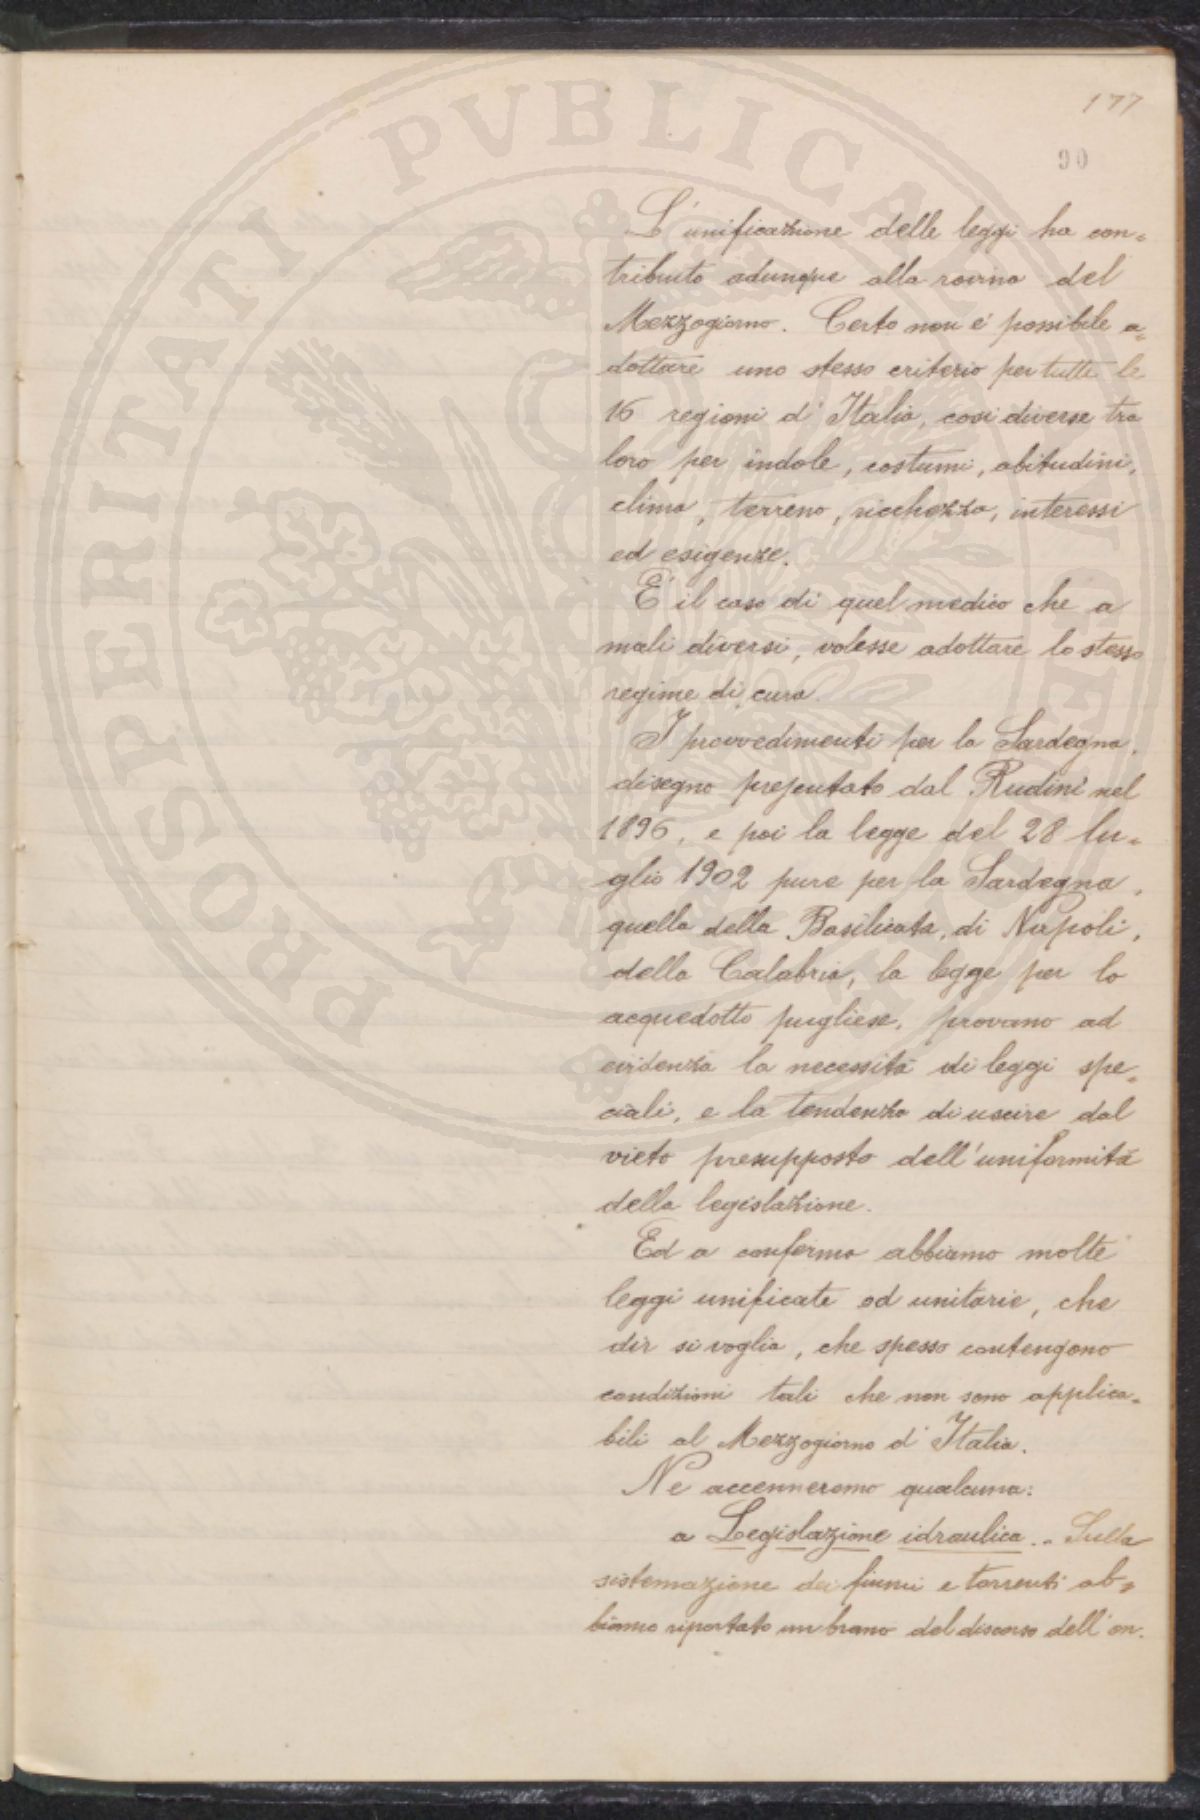 177
90
L'unificazione delle leggi ha con=
tribuito adunque alla rovina del
Mezzogiorno. Certo non è possibile a=
dottare uno stesso criterio per tutte le
16 regioni d'Italia, così diverse tra
loro per indole, costumi, abitudini,
clima, terreno, ricchezza, interessi
ed esigenze.
E' il caso di quel medico che a
mali diversi, volesse adottare lo stesso
regime di cura.
I provvedimenti per la Sardegna,
disegno presentato dal Rudinì nel
1896, e poi la legge del 28 lu=
glio 1902 pure per la Sardegna,
quella della Basilicata, di Napoli,
della Calabria, la legge per lo
acquedotto pugliese, provano ad
evidenza la necessità di leggi spe=
ciali, e la tendenza di uscire dal
vieto presupposto dell'uniformità
della legislazione.
Ed a conferma abbiamo molte
leggi unificate od unitarie, che
dir si voglia, che spesso contengono
condizioni tali che non sono applica=
bili al Mezzogiorno d'Italia.
Ne accenneremo qualcuna:
a Legislazione idraulica.. Sulla
sistemazione dei fiumi e torrenti ab=
biamo riportato un brano del discorso dell'on.
PROSPERITATI PVBLICAE